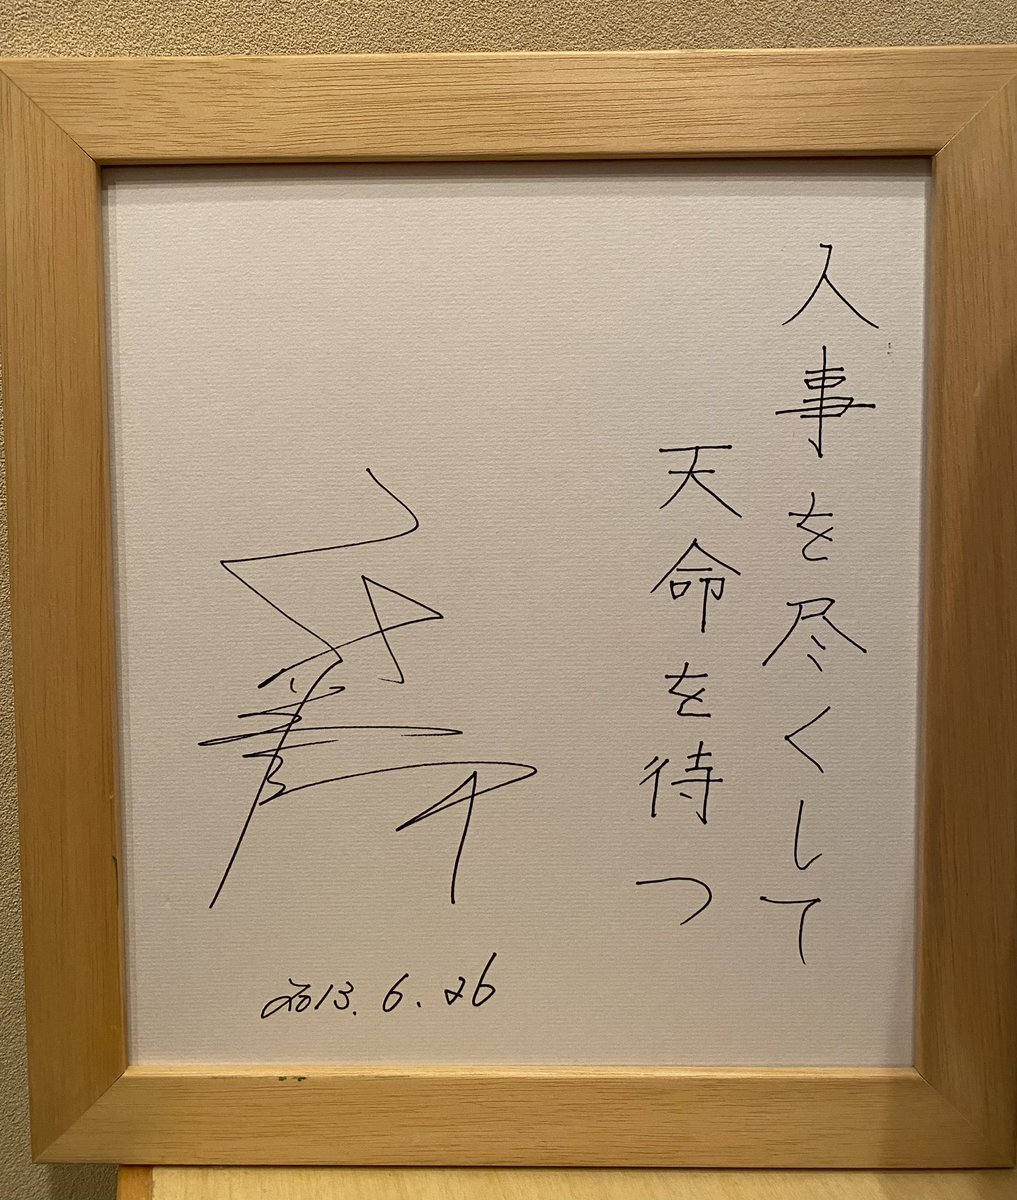 人事を尽くして
天命を待つ
2013.6.26